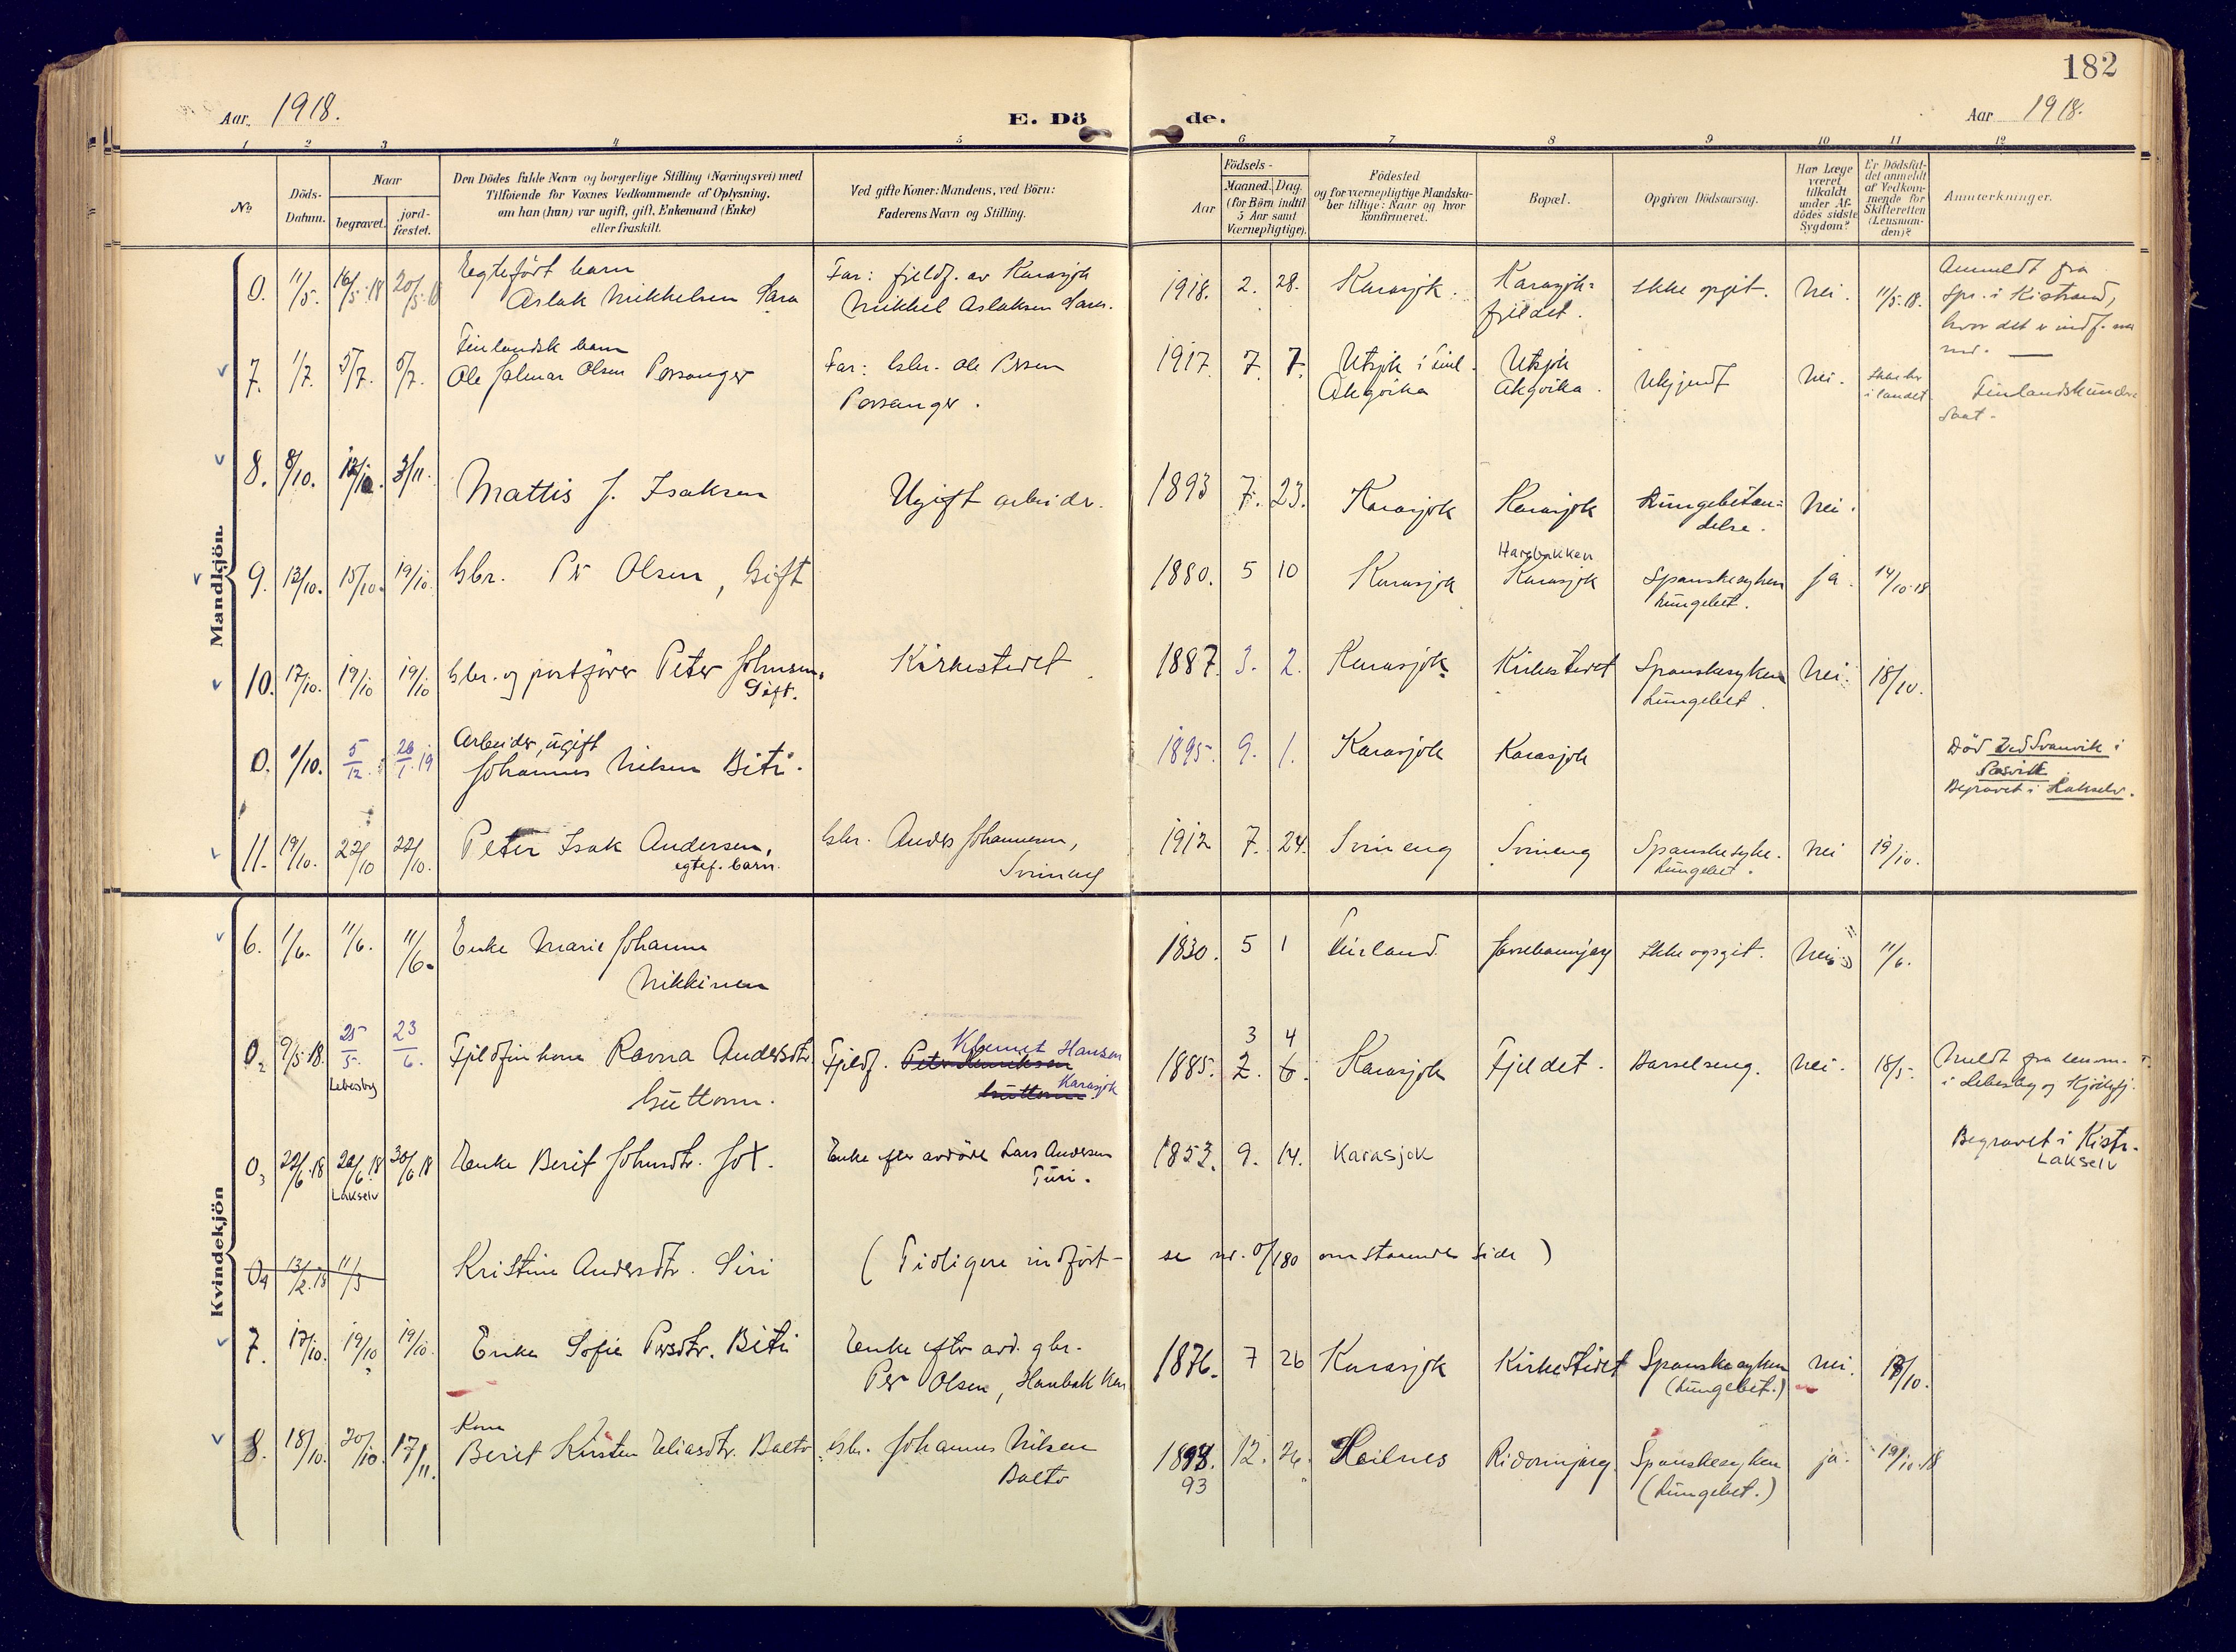 182
Aar. 1918.
E. Dö de.
Aar 1918.
1 2 3 4 5 6 7 8 9 10 11 12
No
Döds-
Datum.
Naar
begravet.
jord-
fæstet.
Den Dödes fulde Navn og borgerlige Stilling (Næringsvei) med
Tilföiende for Voxnes Vedkommende af Oplysning,
om han (hun) var ugift, gift, Enkemand (Enke)
eller fraskilt.
Ved gifte Koner: Mandens, ved Börn:
Faderens Navn og Stilling.
Födsels-
Aar
Maaned. Dag.
(for Börn indtil
5 Aar samt
Værnepligtige).
Födested
og for værnepligtige Mandska-
ber tillige: Naar og hvor
konfirmeret.
Bopæl.
Opgiven Dödsaarsag.
Har Læge
været
tilkaldt
under Af-
dödes sidste
Sygdom?
Er Dödsfal-
det anmeldt
af Vedkom-
mende for
Skifteretten
(Lensman-
den)?
Anmærkninger.
Mandkjön.
0. 11/5. 16/5.18 20/5.18
Egtefört barn
Aslak Mikkelsen Sara
Far: fjeldf. av Karasjok
Mikkel Aslaksen Sara.
1918. 2. 28. Karasjok.
Karasjok-
fjeldet.
Ikke opgit. Nei. 11/5.18.
Anmeldt fra
Spr. i Kistrand,
hvor det er indf.
7. 1/7. 5/7. 5/7.
Finlandsk barn
Ole Jalmar Olsen Porsanger
Far: Gbr. Ole Persen
Porsanger.
1917. 7. 7. Utsjok i Finl.
Akgoika
Utsjok
Akgoika.
Ukjendt Nei. Ikke her
i landet
Finlandsk under-
saat.
8. 8/10. 12/10. 3/11.
Mattis J. Isaksen Ugift arbeider.
1893 7. 23. Karasjok Karasjok Lungebetæn-
delse. Nei.
9. 13/10. 15/10. 19/10. Gbr. Per Olsen, Gift
1880. 5 10 Karasjok Karasjok Spanskesyken
Lungebet. Ja. 14/10.18
10. 17/10. 19/10 19/10 Gbr. og postförer Peter Johnsen.
Gift.
Kirkestedet.
1887. 3. 2. Karasjok Kirkestedet Spanskesyken
Lungebet. Nei. 18/10.
0. 1/10. 5/12. 26/1.19
Arbeider, ugift
Johannes Nilsen Biti.
1895. 9. 1. Karasjok Karasjok
Död ved Svanvik i
Pasvik
Begravet i Lakselv.
11. 19/10. 22/10 22/10.
Peter Isak Andersen,
egtef. barn.
Gbr. Anders Johannesen,
Svineng
1912 7. 24. Svineng Svineng Spanskesyke.
Lungebet. Nei 19/10.
Kvindekjön
6. 1/6. 11/6. 11/6.
Enke Marie Johanne
Nikkinen
1830. 5 1 Finland. Ikke opgit. Nei. 11/6.
02 9/5.18. 25/5. 23/6.
Lebesby
Fjeldfin kone Ravna Andersdtr.
Guttorm.
Fjeldf. Peter Henriksen Klemet Hansen
Guttorm Karasjok
1885. 2. 6. 3 4 Karasjok Fjeldet. Barselseng. Nei. 18/5.
Meldt fra lensm.
i Lebesby og Kjöllefj.
03 22/6.18 26/6.18 30/6.18
Lakselv
Enke Berit Johnsdtr. Jox.
Enke efter avdöde Lars Andersen
Turi.
1853. 9. 14. Karasjok
Begravet i Kistr.
Lakselv
04 13/2.18 11/3
Kristine Andersdtr. Siri
(Tidligere indfört - se nr. 0/180 omstaaende side)
7. 17/10. 19/10 19/10.
Enke Sofie Persdtr. Biti
Enke efter avd. gbr.
Per Olsen, Haubakken
1876. 7 26 Karasjok Kirkestedet Spanskesyken
(Lungebet.) Nei. 18/10.
8. 18/10. 20/10. 17/11.
Kone
Berit Kirsten Eliasdtr. Balto
Gbr. Johannes Nilsen
Balto
1893. 12. 26.
93
Heilnes Ridonnjarg. Spanskesyken
(Lungebet.) ja. 19/10.18